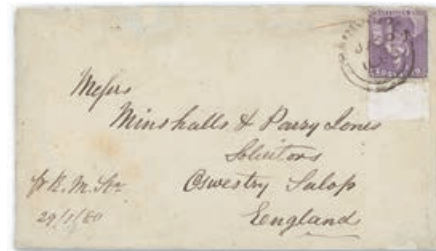 Messrs
Minshalls & Parry Jones
Solicitors
Oswestry Salop
England
pr R. M. Str
29/1/60